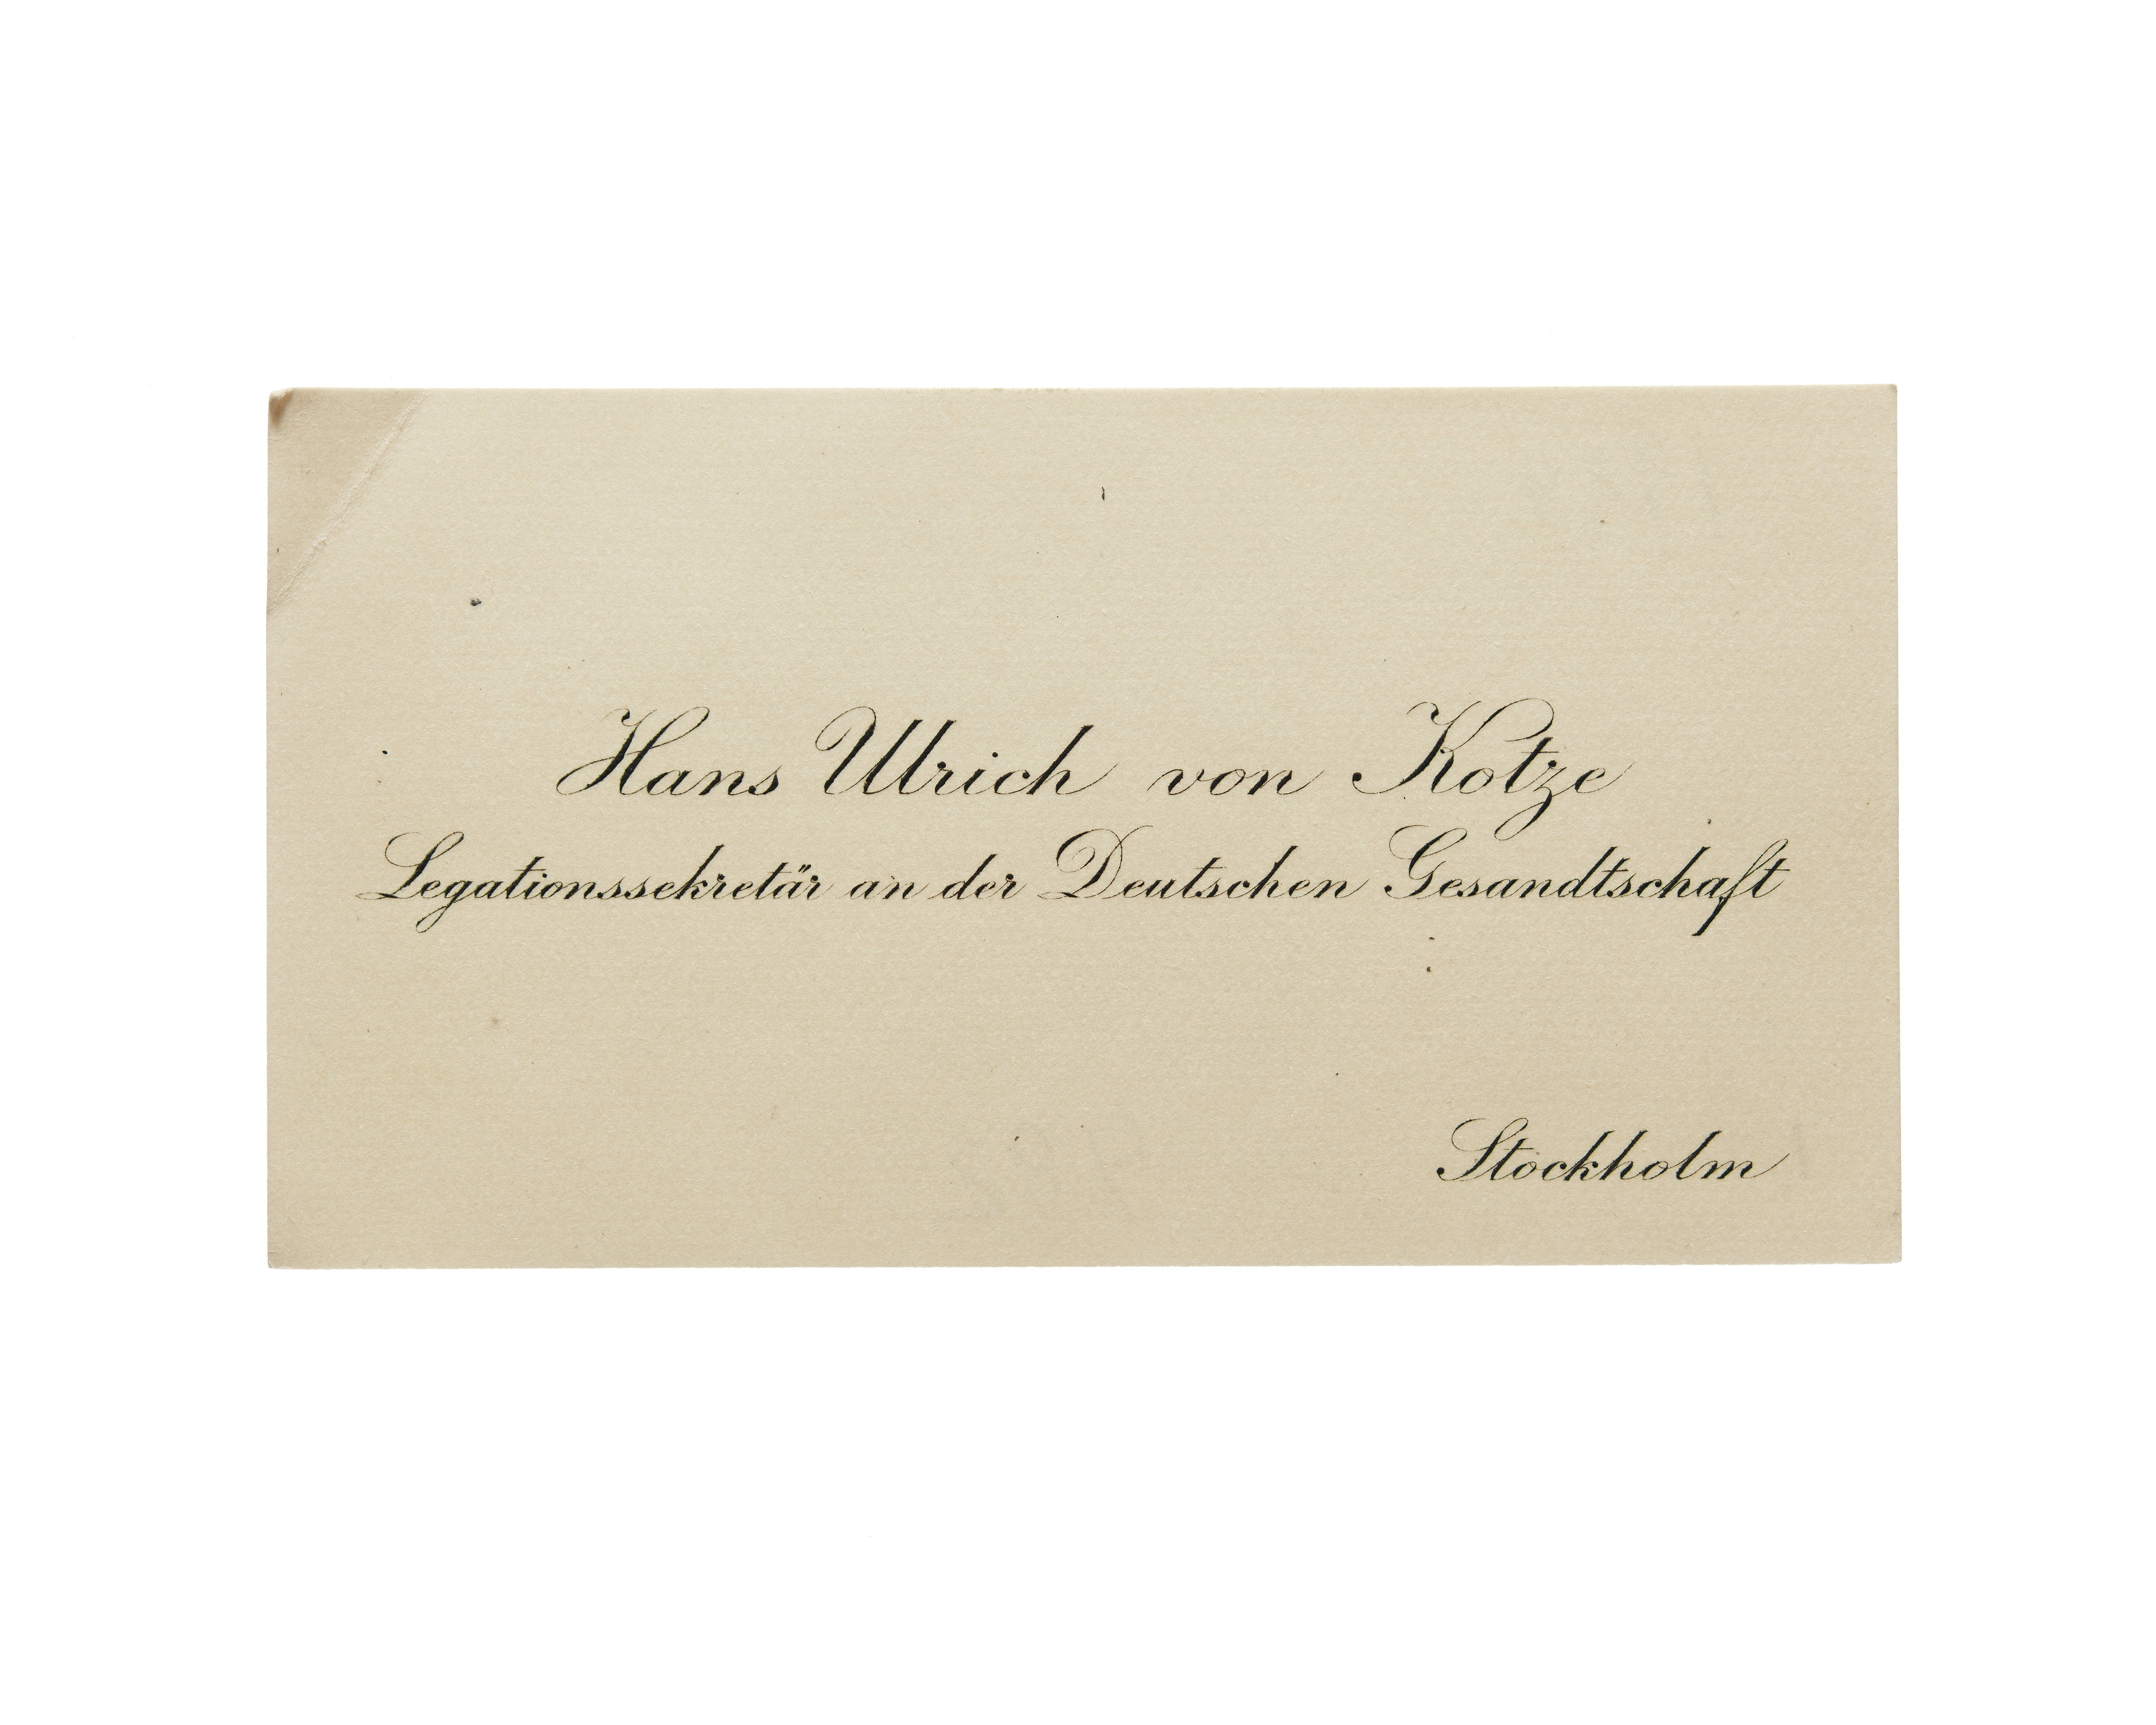 Hans Ulrich von Kotze
Legationssekretär an der Deutschen Gesandtschaft
Stockholm